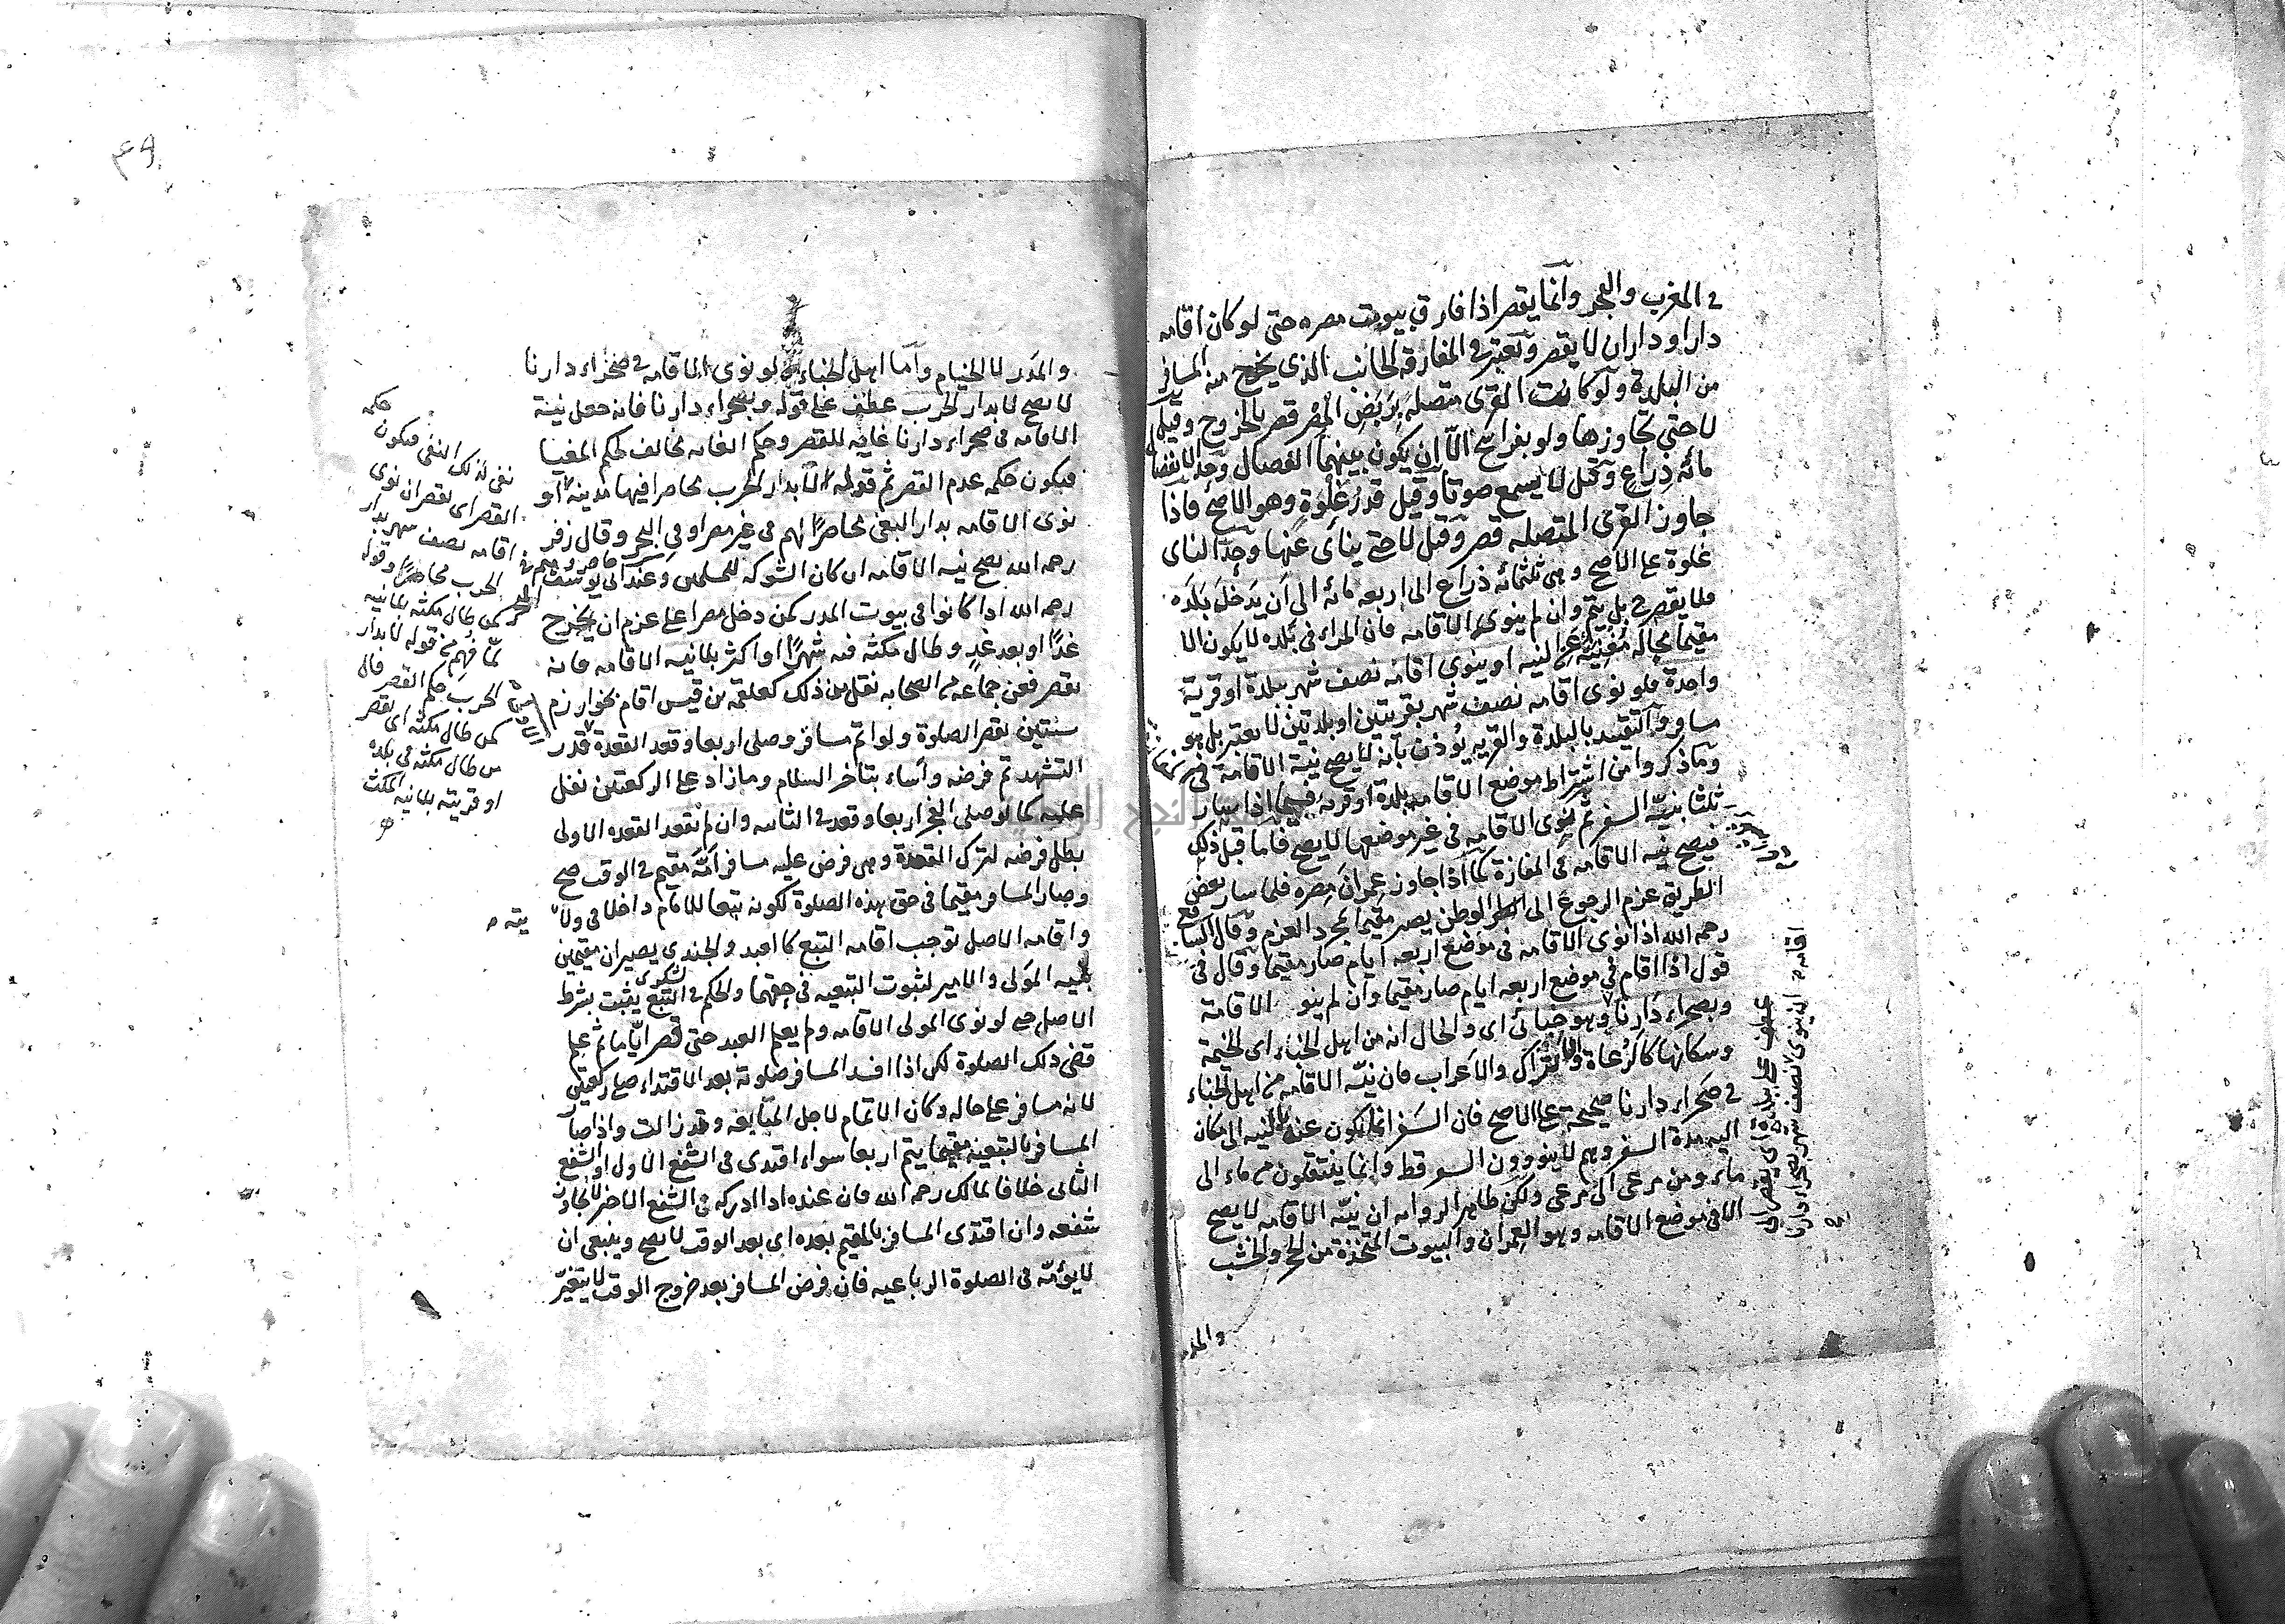 في المغرب والفجر وانما يقصر اذا فارق بيوت مصره حتى لو كان اقامه
دارا وداران لا يقصر وتعتبر في المفارقه الجانب الذي يخرج منه المسافر
من البلدة ولو كانت القرى متصله بربض المصر قصر بالخروج وقيل
لا حتى يجاوزها ولو بفراسخ الا ان يكون بينهما انفصال وحد الانفصال
مائه ذراع وقيل لا يسمع صوتا وقيل قدر غلوة وهو الاصح فاذا
جاوز القرى المتصله قصر وقيل لا حتى ينأى عنها وحد النأى
غلوة على الاصح وهى ثلثمائه ذراع الى اربعه مائه الى أن يدخل بلده
فلا يقصر بل يتم وان لم ينوى الاقامه فان المرء في بلده لا يكون الا
مقيما بحاله مغنية عن النيه او ينوى اقامة نصف شهر ببلدة او قرية
واحدة فلو نوى اقامه نصف شهر بقريتين او بلدتين لا يعتبر بل هو
مسافر والتقييد بالبلدة والقريه يؤذن بانه لا يصح نية الاقامة في
وما ذكروا من اشتراط موضع الاقامه بلدة او قريه فيما اذا سار
ثلثا بنية السفر ثم نوى الاقامه في غير موضعها لا يصح فاما قبل ذلك
فيصح نيه الاقامه في المفازة كما اذا جاوز عمران مصره فلما سار بعض
الطريق عزم الرجوع الى الوطن يصير مقيما بمجرد العزم وقال الشافع
رحمه الله اذا نوى الاقامه في موضع اربعه ايام صار مقيما وقال في
قول اذا اقام في موضع اربعه ايام صار مقيما وان لم ينو الاقامة
وبصحراء دارنا وهو خبائى اى والحال انه من اهل الخباء اى الخيمة
وسكانها كالرعاة والاتراك والاعراب فان نية الاقامه من اهل الخباء
في صحراء دارنا صحيحة على الاصح فان السفر انما يكون عند النيه الى مكان
اليه مدة السفر وهم لا ينوون السفر قط وانما ينتقلون من ماء الى
ماء ومن مرعى الى مرعى ولكن ظاهر الروايه ان نية الاقامه لا يصح
الا في موضع الاقامه وهو العمران والبيوت المتخذة من الحجر والخشب
والمدر
٤٩
والمدر لا الخيام وأما اهل الخباء لو نوى الاقامه في صحراء دارنا
لا يصح لا بدار الحرب عطف على قوله وبصحراء دارنا فانه جعل نية
الاقامه في صحراء دارنا غايه للقصر وحكم الغايه مخالف لحكم المغيا
فيكون حكمه عدم القصر ثم قوله لا بدار الحرب محاصرا فيها مدينه او
نوى الاقامه بدار البغى محاصرا لهم في غير مصر او في البحر وقال زفر
رحمه الله يصح نيه الاقامه ان كان الشوكه للمسلمين وعند ابى يوسف
رحمه الله اذا كانوا في بيوت المدر كمن دخل مصرا على عزم ان يخرج
غدا او بعد غد وطال مكثه فيه شهرا او اكثر بلا نيه الاقامه فانه
يقصر فعن جماعه من الصحابه نقل من ذلك كعلقمه بن قيس اقام بخوارزم
سنتين يقصر الصلوة ولو اتم مسافر وصلى اربعا وقعد القعدة قدر
التشهد تم فرضه وأساء بتاخر السلام وما زاد على الركعتين نفل
عليه كما لو صلى الفجر اربعا وقعد في الثانيه وان لم يقعد القعده الاولى
بطل فرضه لترك القعدة وهى فرض عليه مسافر أمه مقيم في الوقت صح
وصار المسافر مقيما في حق هذه الصلوة لكونه تبعا للامام داخلا في ولا
يته
واقامه الاصل توجب اقامه التبع كالعبد والجندى يصيران مقيمين
بنيه المولى والامير لثبوت التبعيه في حقهما والحكم في التبع يثبت بشرط
الاصل حتى لو نوى المولى الاقامه ولم يعلم العبد حتى قصر اياما ثم علم
قضى ذلك الصلوة لكن اذا افسد المسافر صلوته بعد الاقتداء صلى ركعتين
لانه مسافر على حاله وكان الاتمام لاجل المتابعه وقد زالت واذا صار
المسافر بالتبعيه مقيما يتم اربعا سواء اقتدى في الشفع الاول او الشفع
الثانى خلافا لمالك رحمه الله فان عنده اذا ادركه في الشفع الاخير لا يجاوز
شفعه وان اقتدى المسافر بالمقيم بعده اى بعد الوقت لا يصح وينبغى ان
لا يؤمه في الصلوة الرباعيه فان فرض المسافر بعد خروج الوقت لا يتغير
حكمه
نفى لذلك النفى فيكون
القصر اى يقصر ان نوى
اقامه نصف شهر بدار
الحرب محاصرا وقوله
كمن طال مكثه بلا نيه
لما فهم من قوله لا بدار
الحرب حكم القصر قال
كمن طال مكثه اى يقصر
من طال مكثه في بلدة
او قريته بلا نيه المكث